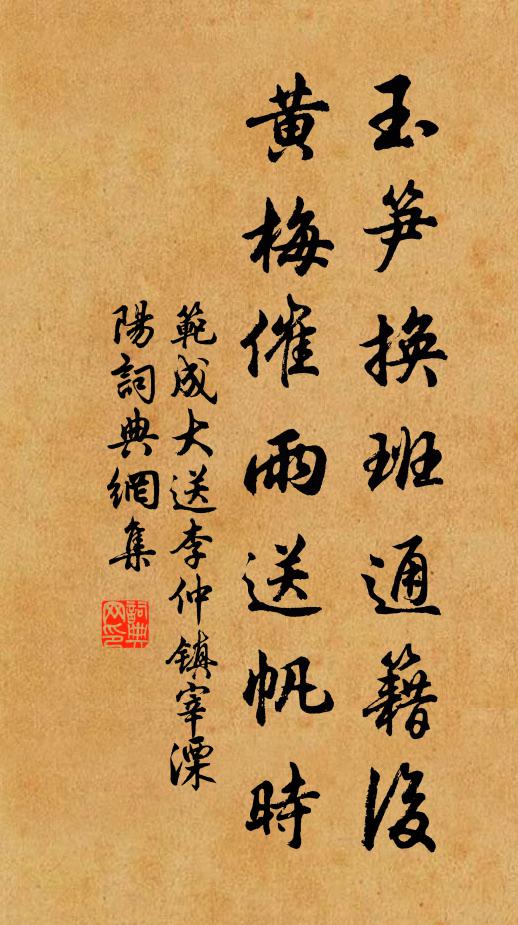 玉笋換班通籍後
黃梅催雨送帆時
範成大送李仲鎮宰溧
陽詞典網集
詞典
网印